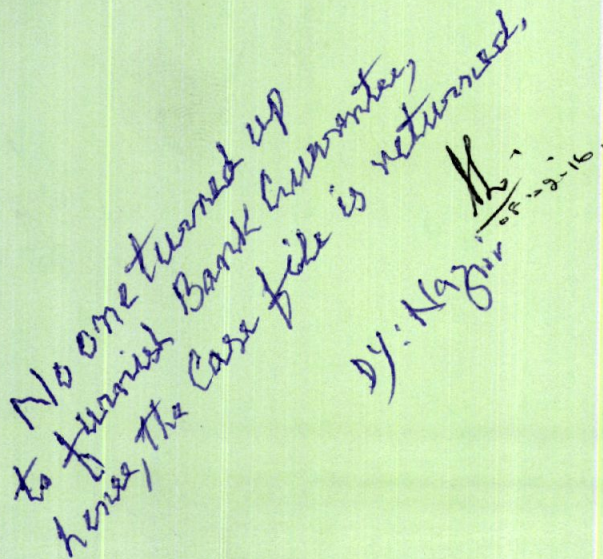 No one turned up
to furnish Bank Guarantee,
hence, the Case file is returned,
08-2-16
Dy: Nazir